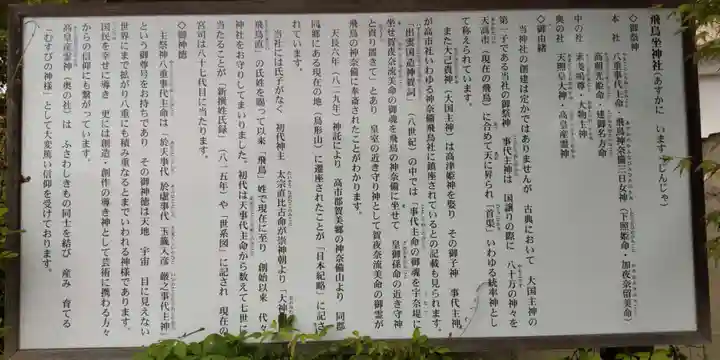 飛鳥坐神社(あすかに います じんじゃ)
◇御祭神
本社 八重事代主命 飛鳥神奈備三日女神(下照姫命・加夜奈留美命)
高照光姫命 建御名方命
中の社 素戔嗚尊・大物主神
奥の社 天照皇大神 高皇産霊神
◇御由緒
当神社の創建は定かではありませんが 古典において 大国主神の
第一子である当社の御祭神 事代主神は 国譲りの際に 八十万の神々を
天高市(現在の飛鳥)に合めて天に昇られ「首渠」いわゆる統率神とし
て称えられています。
また大己貴神(大国主神)は高津姫神を娶り その御子神 事代主神
が高市社いわゆる神奈備飛鳥社に鎮座されているとの記載も見られます。
「出雲国造神賀詞」(八世紀)の中では「事代主命の御魂を宇奈堤に
坐せ賀夜奈流美命の御魂を飛鳥の神奈備に坐せて 皇御孫命の近き守神
と貢り置きて」とあり 皇室の近き守り神として賀夜奈流美命の御霊が
飛鳥の神奈備に奉斎されたことがわかります。
天長六年(八二九年)神託により 高市郡賀美郷の神奈備山より 同郡
同郷にある現在の地(鳥形山)に遷座されたことが「日本紀略」に記さ
れています。
当社には氏子がなく 初代神主 太宗直比古命が崇神朝より「大神
飛鳥直」の氏姓を賜って以来「飛鳥」姓で現在に至り 創始以来 代々
神社をお守りしてまいりました。初代は天事代主命から数えて七世に
当たることが「新撰姓氏録」(八一五年)や「世系図」に記され 現在の
宮司は八十七代目に当たります。
◇御神徳
主祭神八重事代主命は「於天事代 於虚事代 玉籤入彦 厳之事代主神」
という御尊号をお持ちであり その御神徳は天地 宇宙 目に見えない
世界にまで拡がり八重にも積み重なるとまでいわれる神様であります。
国民を幸せに導き 更には創造・創作の導き神として芸術に携わる方々
からの信仰にも繋がっています。
高皇産霊神(奥の社)は ふさわしきもの同士を結び 産み 育てる
「むすびの神様」として大変篤い信仰を受けております。